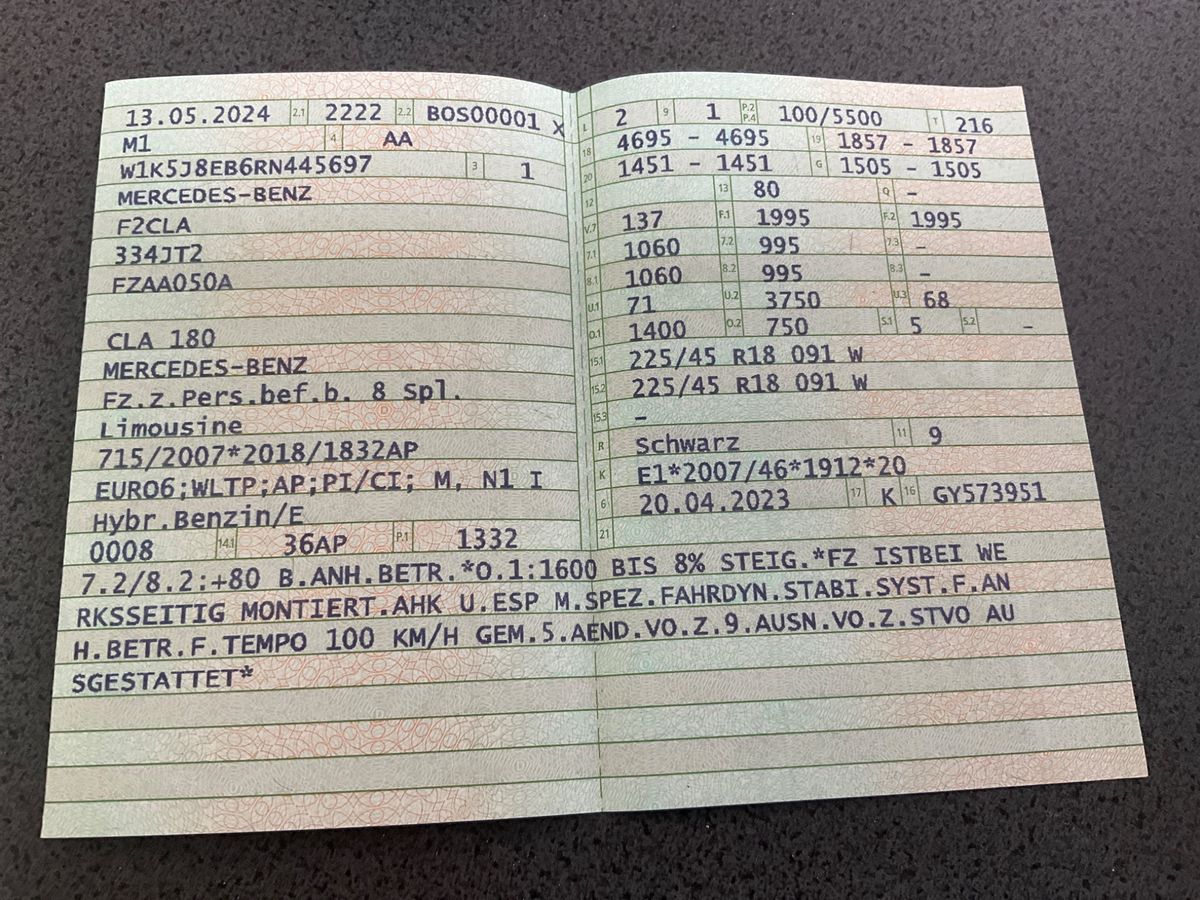 13.05.2024 2.1 2222 2.2 BOS00001 X
M1 4 AA
W1K5J8EB6RN445697 3 1
MERCEDES-BENZ
F2CLA
334JT2
FZAA050A
CLA 180
MERCEDES-BENZ
Fz.z.Pers.bef.b. 8 Spl.
Limousine
715/2007*2018/1832AP
EURO6;WLTP;AP;PI/CI; M, N1 I
Hybr.Benzin/E
0008 14.1 36AP P.1 1332
L 2 9 1 P.2 P.4 100/5500 T 216
18 4695 - 4695 19 1857 - 1857
20 1451 - 1451 G 1505 - 1505
12 13 80 Q -
V.7 137 F.1 1995 F.2 1995
7.1 1060 7.2 995 7.3 -
8.1 1060 8.2 995 8.3 -
U.1 71 U.2 3750 U.3 68
O.1 1400 O.2 750 S.1 5 S.2 -
15.1 225/45 R18 091 W
15.2 225/45 R18 091 W
15.3 -
R Schwarz 11 9
K E1*2007/46*1912*20
6 20.04.2023 17 K 16 GY573951
21
7.2/8.2:+80 B.ANH.BETR.*O.1:1600 BIS 8% STEIG.*FZ ISTBEI WE
RKSSEITIG MONTIERT.AHK U.ESP M.SPEZ.FAHRDYN.STABI.SYST.F.AN
H.BETR.F.TEMPO 100 KM/H GEM.5.AEND.VO.Z.9.AUSN.VO.Z.STVO AU
SGESTATTET*